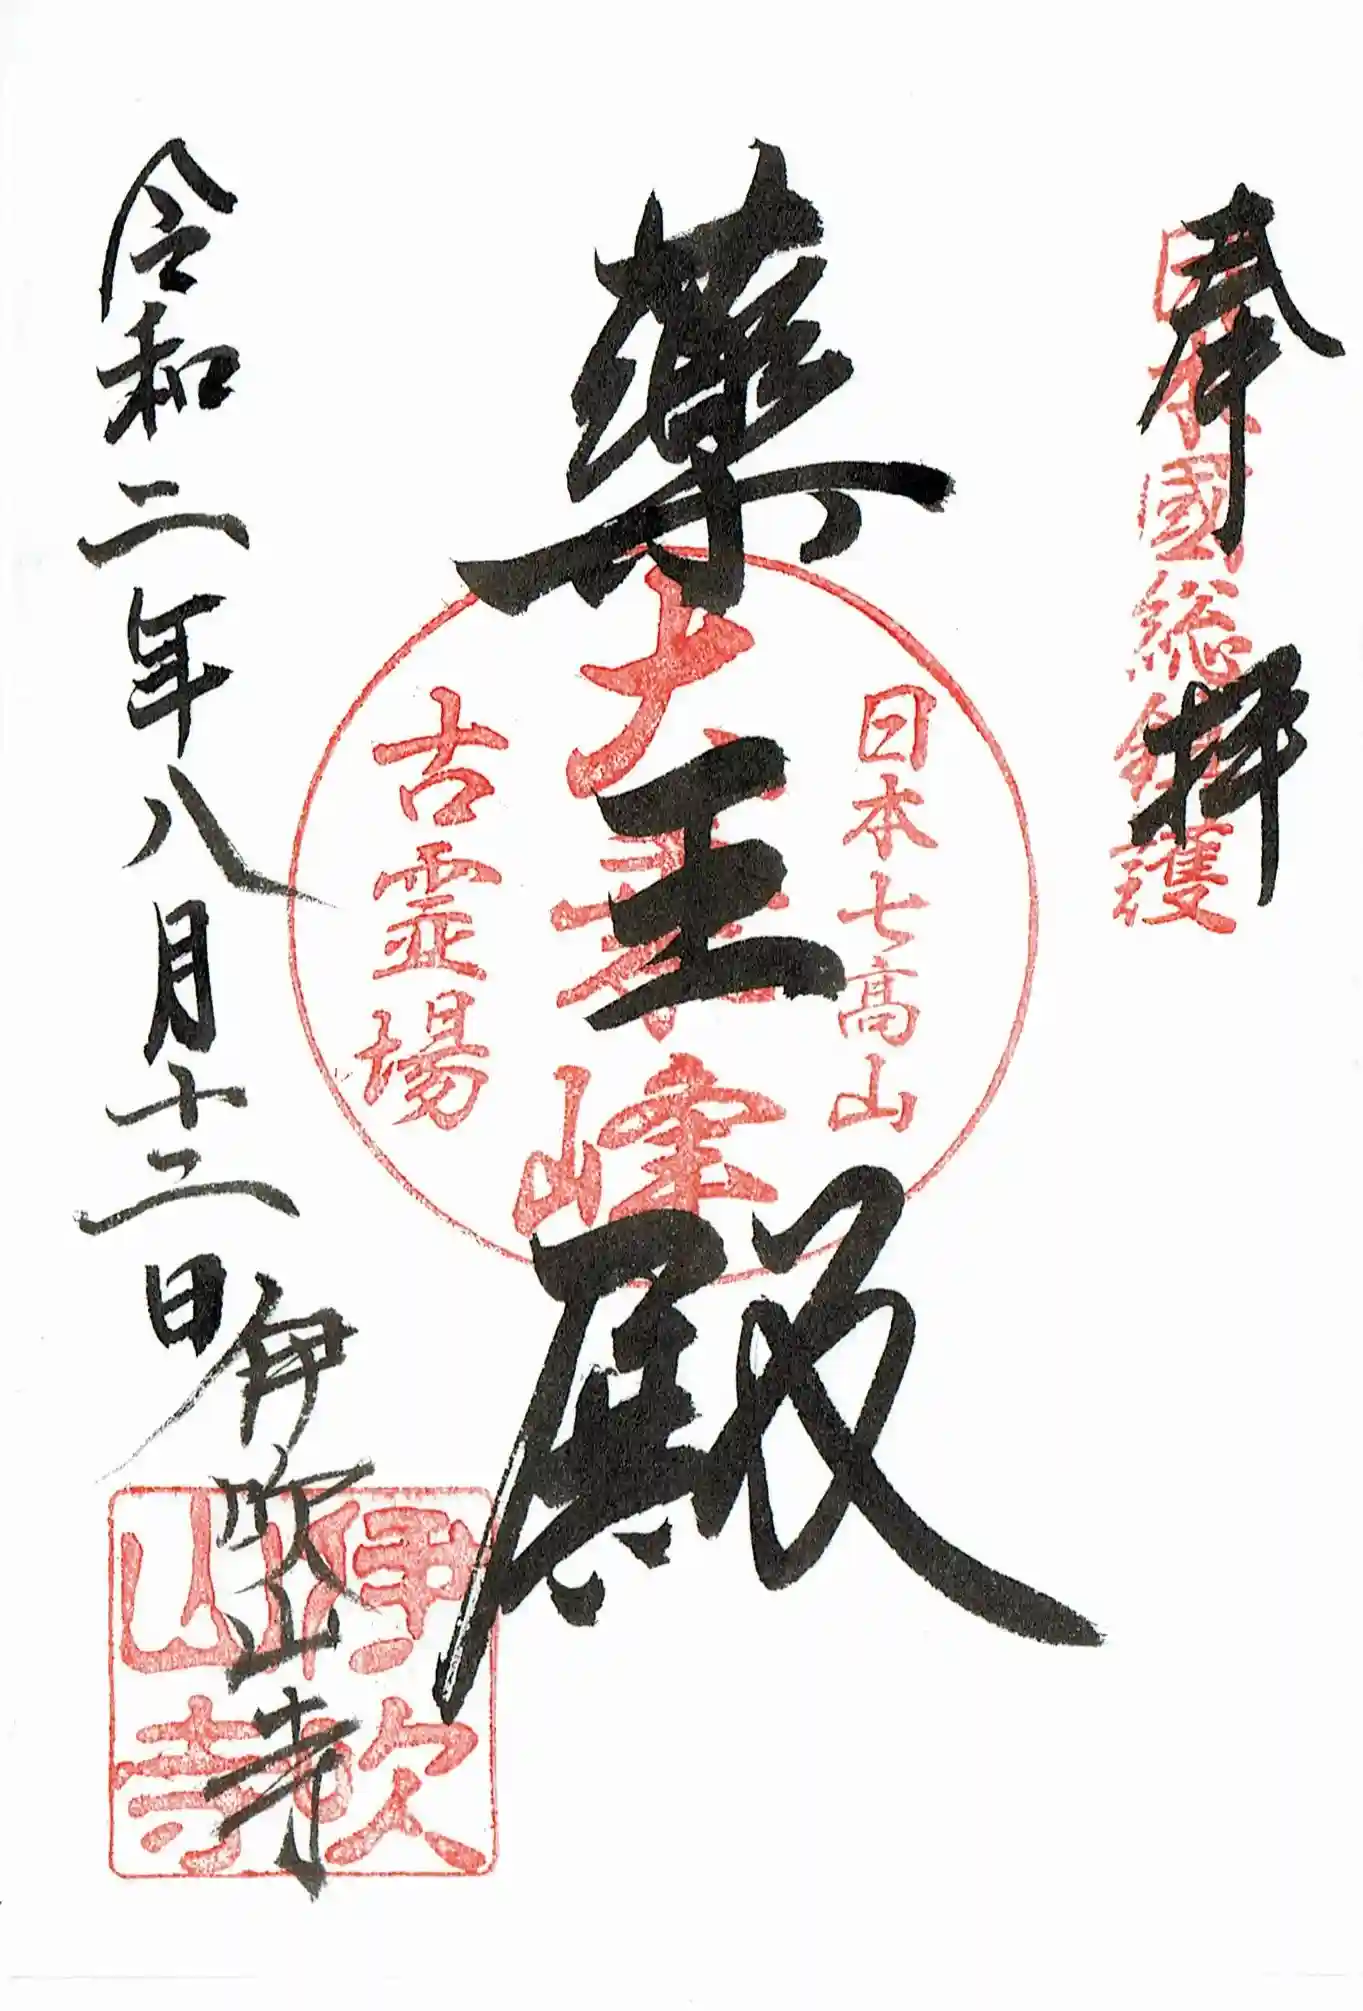 奉拝
日本國総鎮護
藥王殿
日本七高山
大乗峰
古霊場
令和二年八月十二日
伊吹山寺
伊吹
山寺